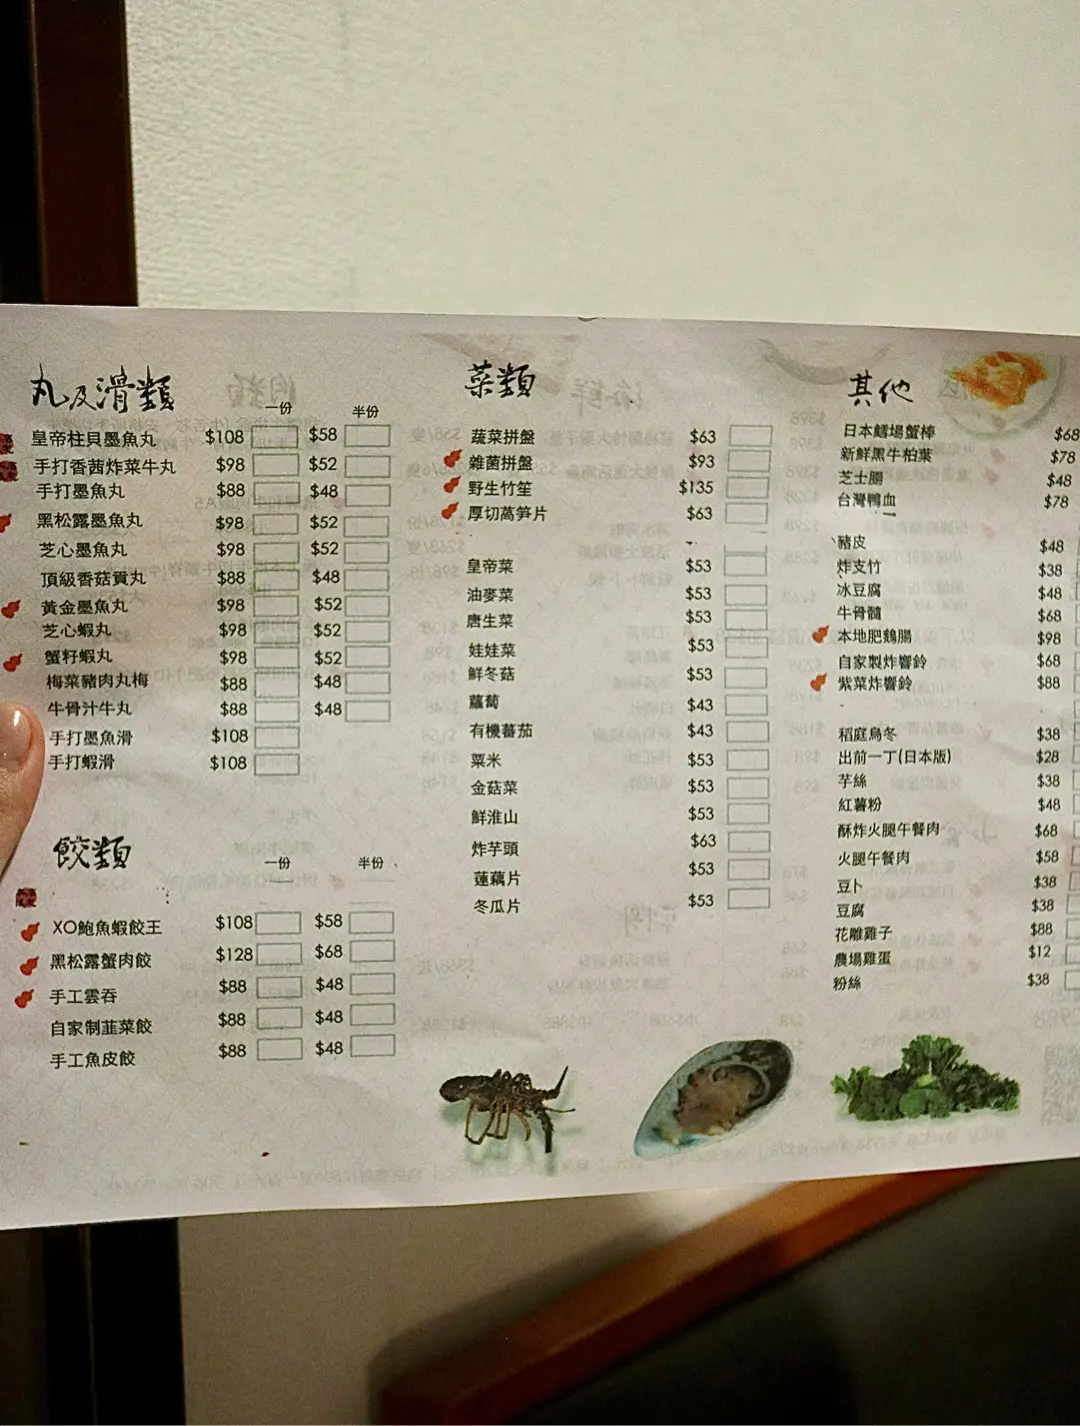 丸及滑類
一份 半份
皇帝柱貝墨魚丸 $108 $58
手打香茜炸菜牛丸 $98 $52
手打墨魚丸 $88 $48
黑松露墨魚丸 $98 $52
芝心墨魚丸 $98 $52
頂級香菇貢丸 $88 $48
黃金墨魚丸 $98 $52
芝心蝦丸 $98 $52
蟹籽蝦丸 $98 $52
梅菜豬肉丸梅 $88 $48
牛骨汁牛丸 $88 $48
手打墨魚滑 $108
手打蝦滑 $108
餃類
一份 半份
XO鮑魚蝦餃王 $108 $58
黑松露蟹肉餃 $128 $68
手工雲吞 $88 $48
自家制韮菜餃 $88 $48
手工魚皮餃 $88 $48
菜類
蔬菜拼盤 $63
雜菌拼盤 $93
野生竹笙 $135
厚切萵笋片 $63
皇帝菜 $53
油麥菜 $53
唐生菜 $53
娃娃菜 $53
鮮冬菇 $53
蘿蔔 $43
有機蕃茄 $43
粟米 $53
金菇菜 $53
鮮淮山 $53
炸芋頭 $63
蓮藕片 $53
冬瓜片 $53
其他
日本鱈場蟹棒 $68
新鮮黑牛柏葉 $78
芝士腸 $48
台灣鴨血 $78
豬皮 $48
炸支竹 $38
冰豆腐 $48
牛骨髓 $68
本地肥鵝腸 $98
自家製炸響鈴 $68
紫菜炸響鈴 $88
稻庭烏冬 $38
出前一丁(日本版) $28
芋絲 $38
紅薯粉 $48
酥炸火腿午餐肉 $68
火腿午餐肉 $58
豆卜 $38
豆腐 $38
花雕雞子 $88
農場雞蛋 $12
粉絲 $38